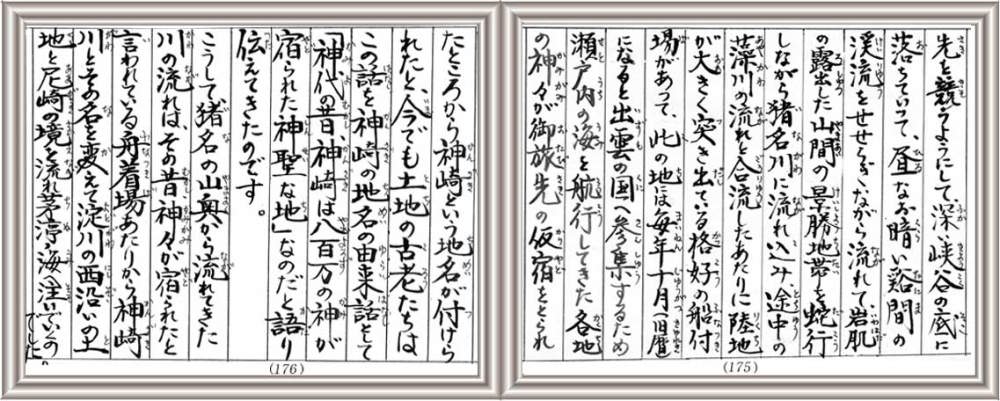 先を競うようにして深い峡谷の底に
落ちていって、昼なお暗い谿間の
渓流をせせらぎながら流れて岩肌
の露出した山間の景勝地帯を蛇行
しながら猪名川に流れ込み、途中の
藻川の流れと合流したあたりに陸地
が大きく突き出ている格好の船付
場があって、此の地には毎年十月(旧暦
になると出雲の国へ参集するため
瀬戸内の海を航行してきた各地
の神々が御旅先の仮宿をとられ
(175)
たところから神崎という地名が付けら
れたと、今でも土地の古老たちは
この話を神崎の地名の由来話として
「神代の昔、神崎は八百万の神が
宿られた神聖な地」なのだと語り
伝えてきたのです。
こうして猪名の山奥から流れてきた
川の流れは、その昔、神々が宿られたと
言われている舟着場あたりから神崎
川とその名を変えて淀川の西沿いの土
地と尼崎の境を流れ茅渟の海へ注いでいるの
でした。
(176)